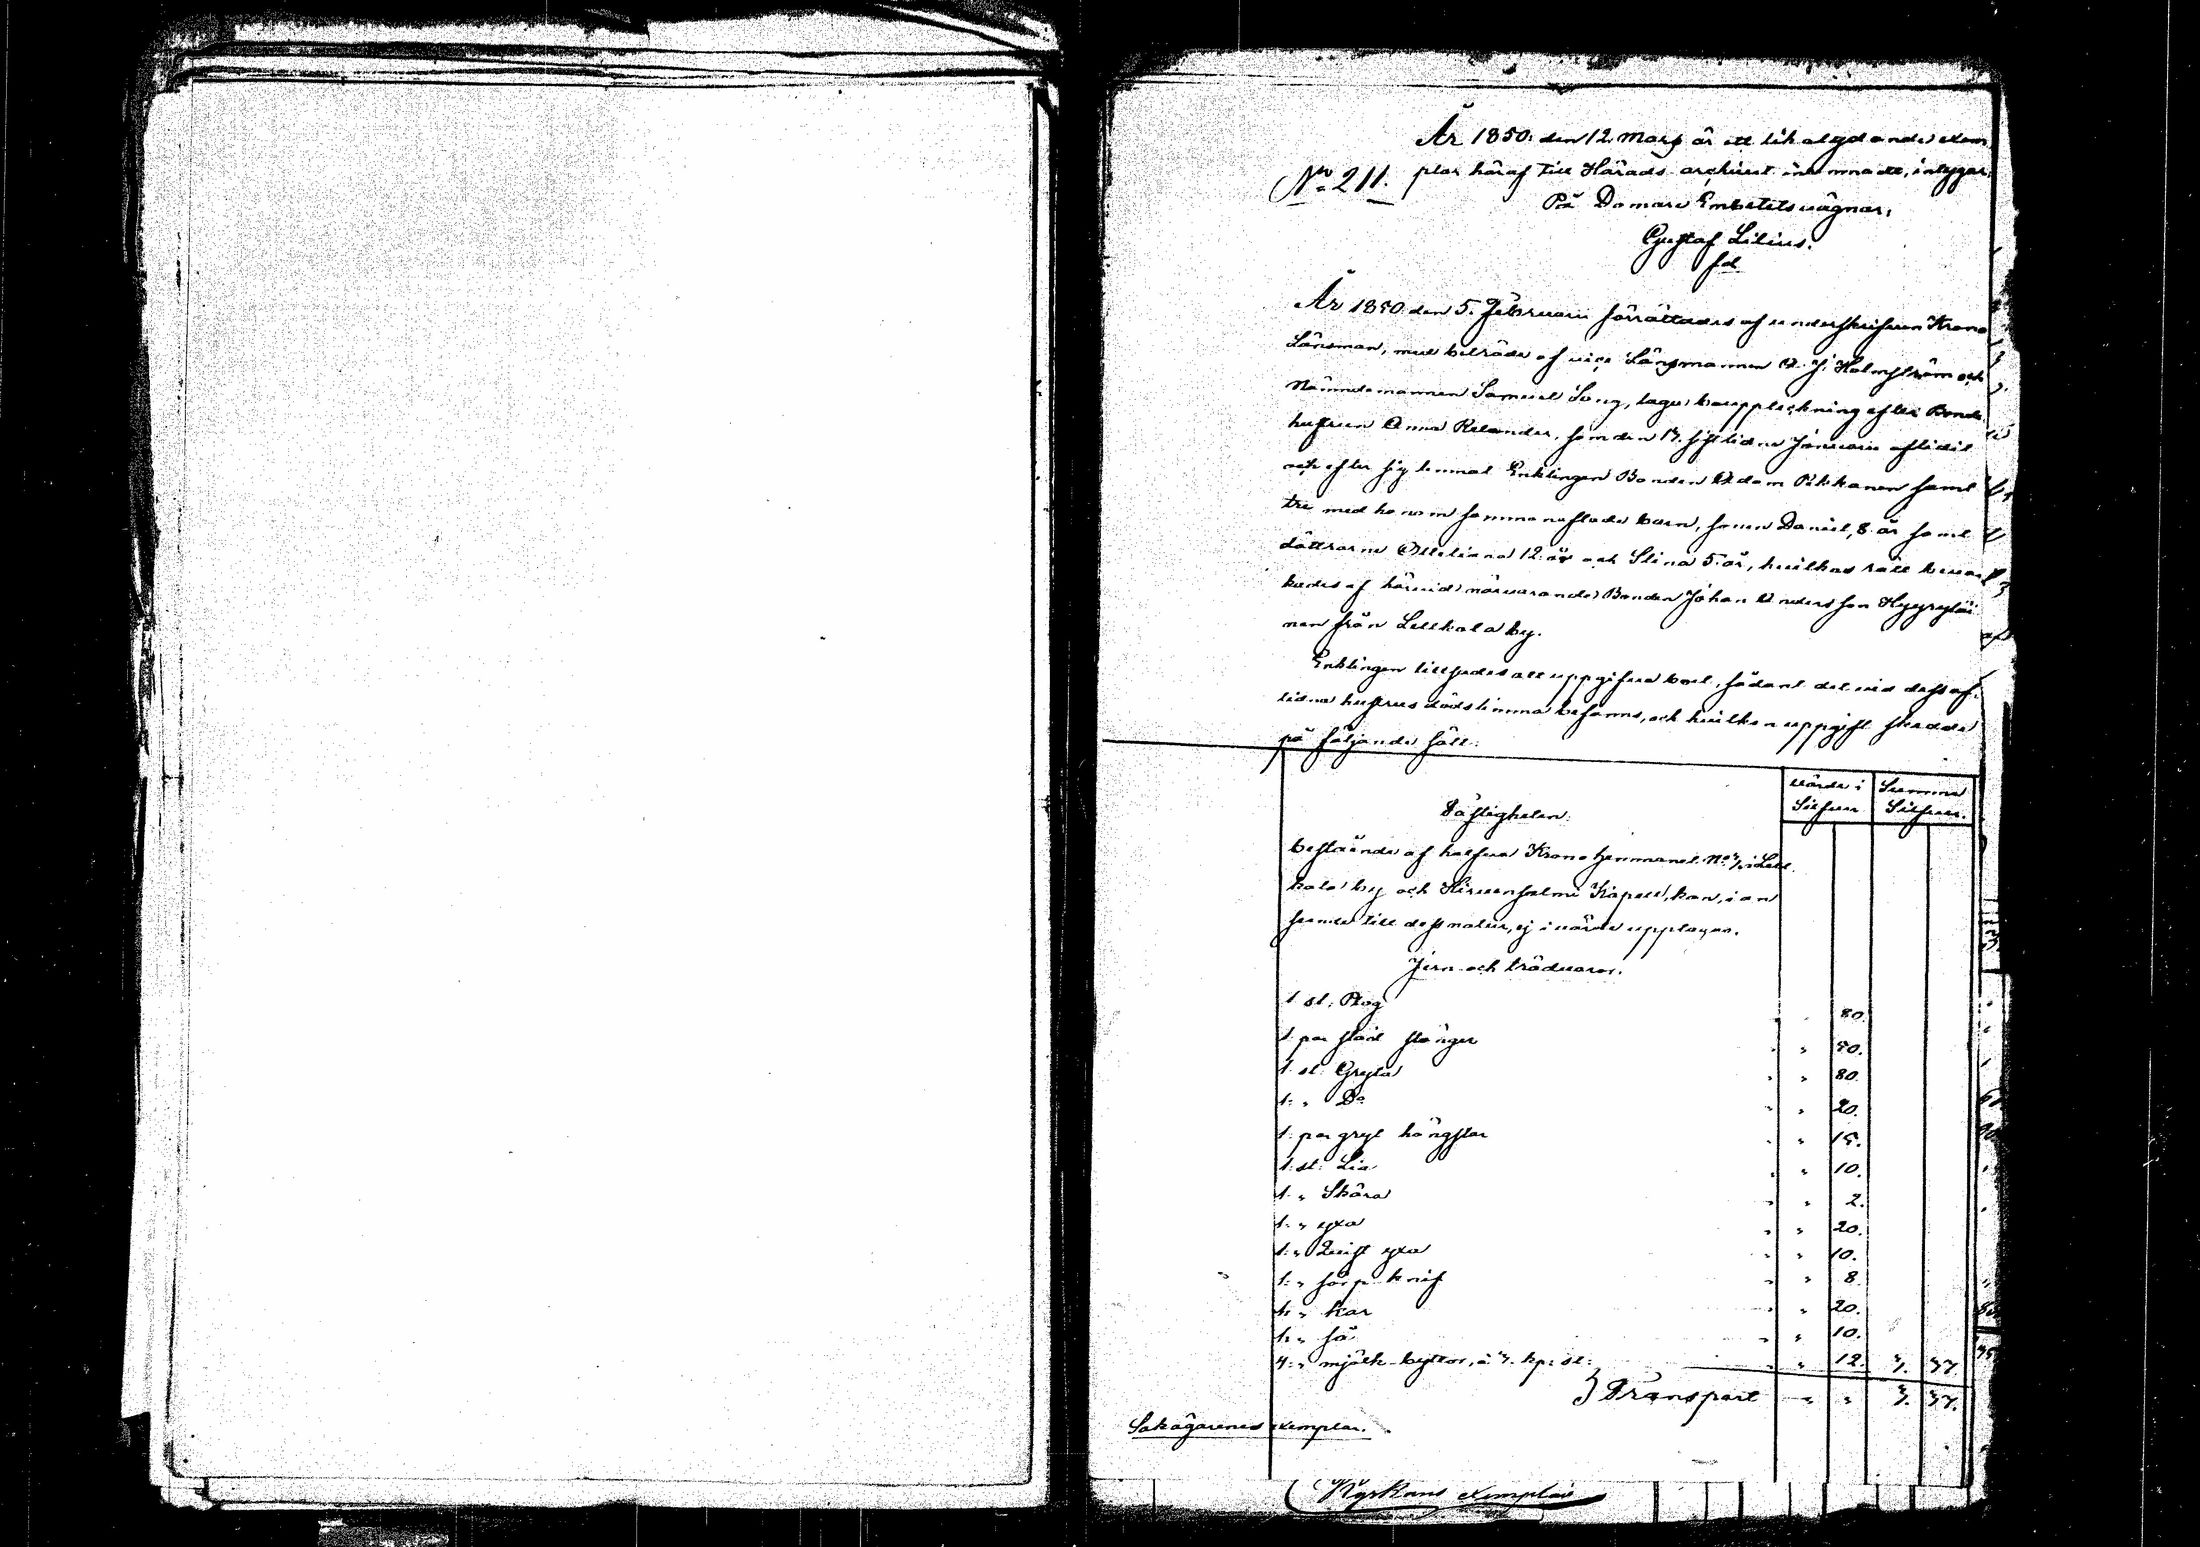 År 1850. den 12. Mars är ett likalydande exem
No 211. plar häraf till Härads-archivet inlemnadt, intygar,
På Domare Embetets vägnar:
Gustaf Lilius.
År 1850. den 5. Februarii förrättades af underskrifven Krono
Länsman, med biträde af vice Länsmannen A. J. Holmström och
Nämndemannen Samuel Sung, laga bouppteckning efter Bonde
hustrun Anna Relander, som den 17. sistlidne Januarii aflidit
och efter sig lemnat Enklingen Bonden Adam Pekkanen samt
tre med honom sammanaflade barn, sonen Daniel, 8. år samt
döttrarne Ottiliana 12. år och Stina 5. år, hvilkas rätt bevak
kades af härvid närvarande Bonden Johan Andersson Hyyryläi
nen från Lettkala by.
Enklingen tillsades att uppgifva boet, sådant det vid dess af-
lidna hustrus dödstimma befanns, och hvilken uppgift skedde
på följande sätt:
värde i Silfver Summa Silfver.
Fastigheten:
bestående af halfva Krono hemmanet No 7, i Lett
kala by och Hirvensalmi Kapell, kan, i an
seende till dess natur, ej i värde upptagas.
Jern- och trädvaror.
1. st: Plog " 80.
1. par stail stänger " " 50.
1. st: Gryta " " 80.
1. " Do " " 20.
1. par gryt hängslar " " 15.
1. st: Lia " " 10.
1. " Skära " " 2.
1. " yxa " " 20.
1. " Quist yxa " " 10.
1. " knif " " 8.
1. " Kar " " 20.
1. " så " " 10.
4. " mjölk-byttor, à 3. kp: st: " " 12. 3. 37.
Transport " " 3. 37.
Sakägarenes exemplar.
Kyrkans exemplar